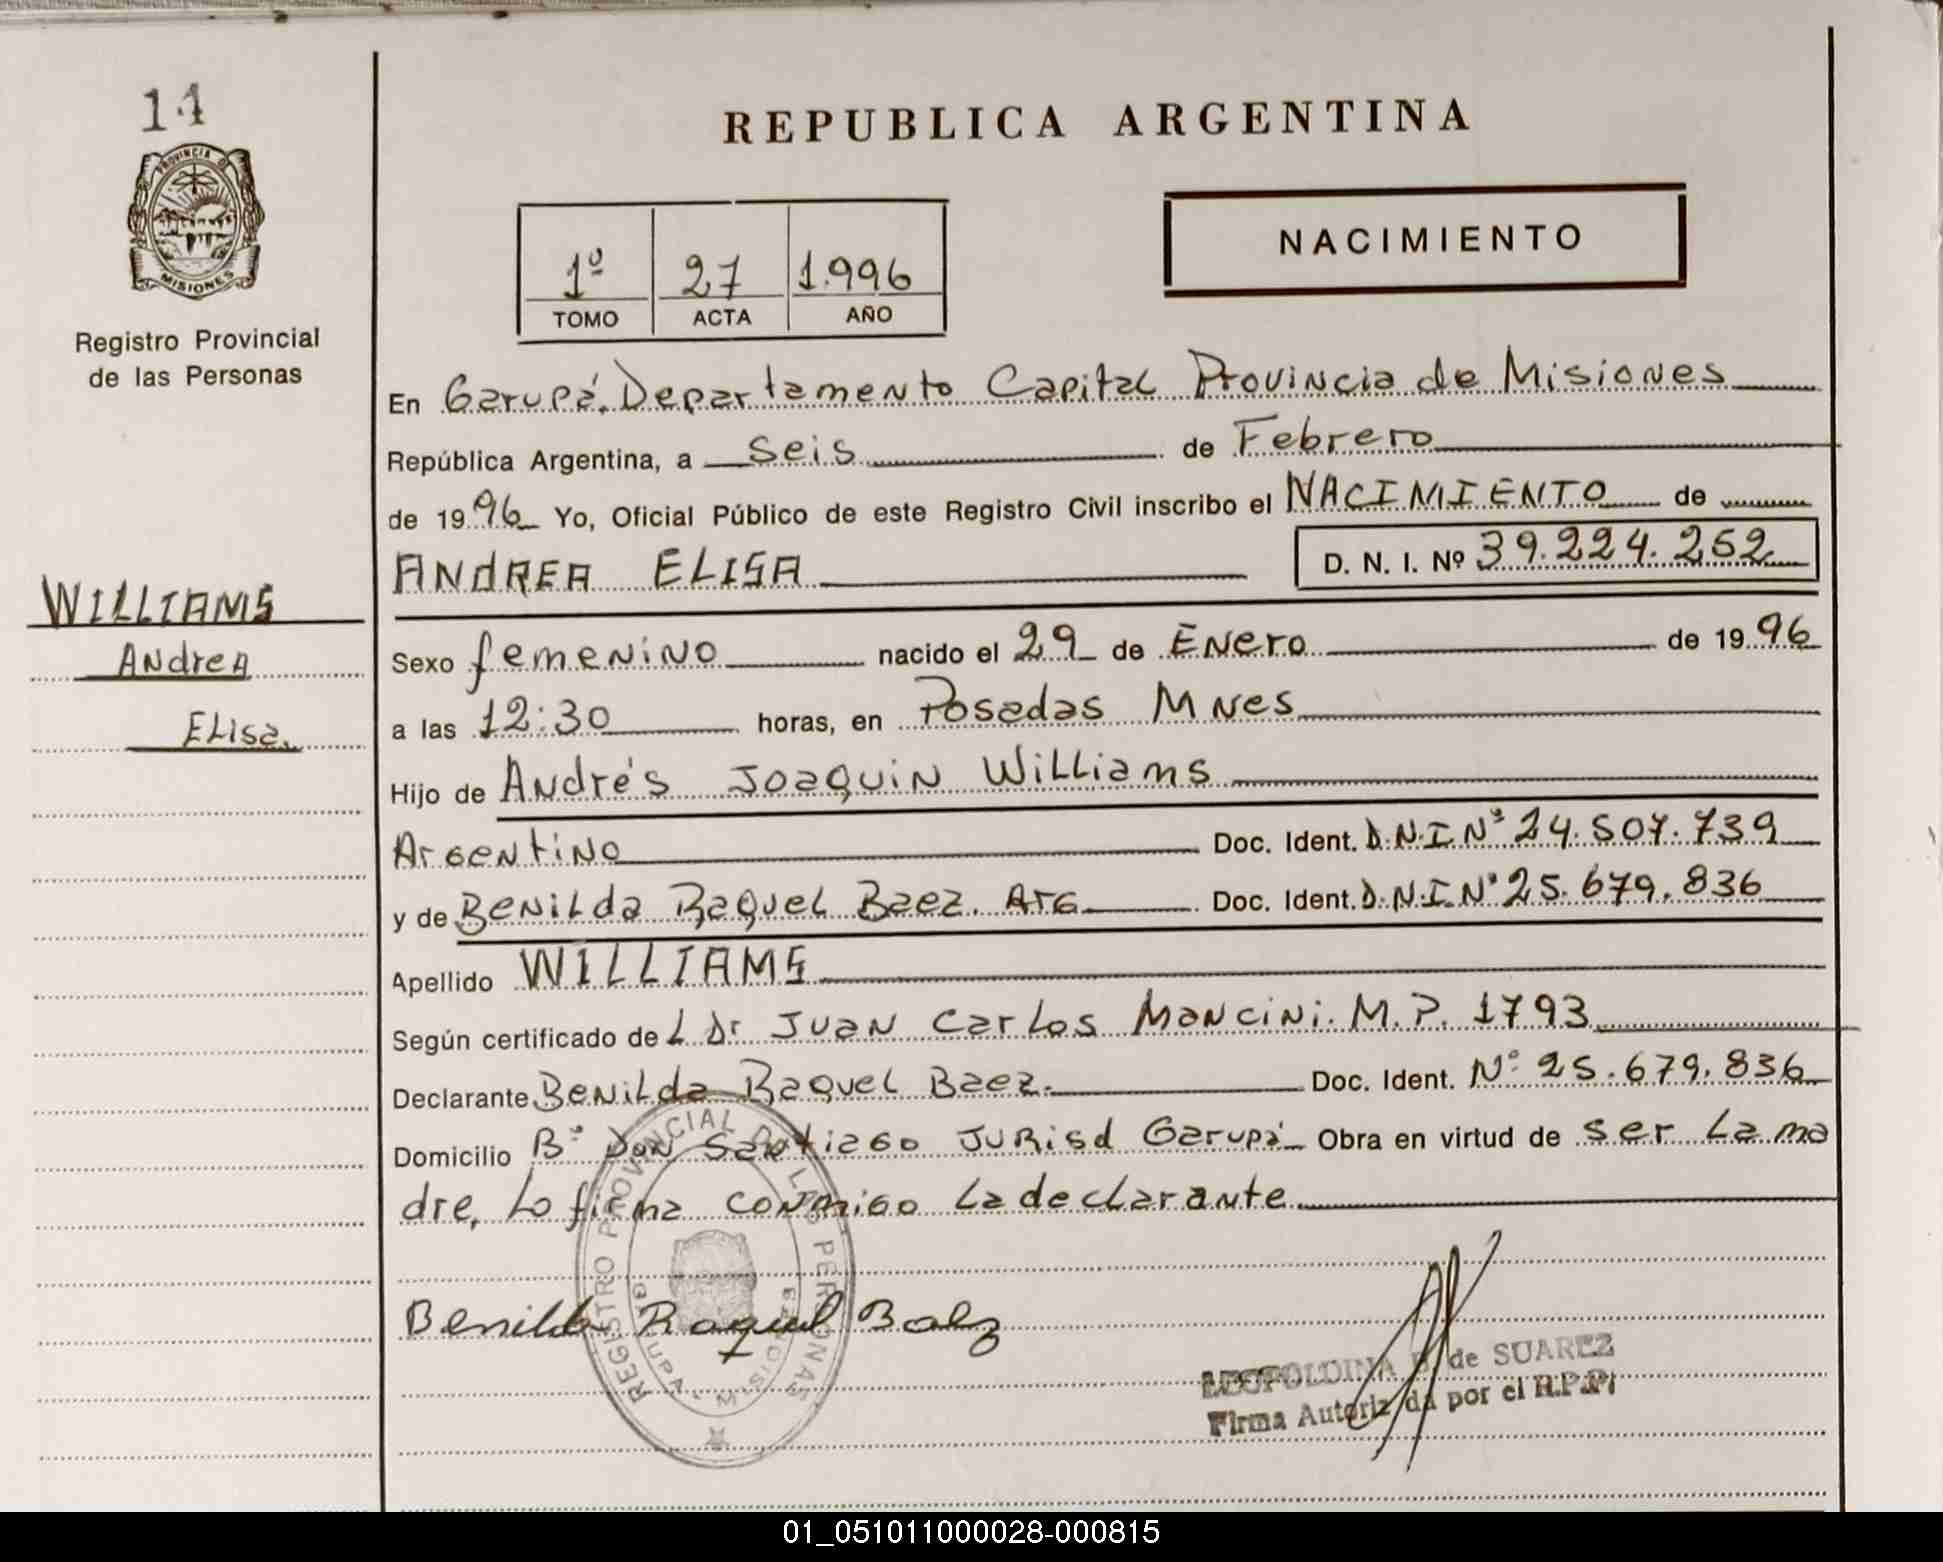 14
PROVINCIA DE
MISIONES
Registro Provincial
de las Personas
WILLIAMS
Andrea
Elisa.
REPUBLICA ARGENTINA
1º 27 1.996
TOMO ACTA AÑO
NACIMIENTO
En Garupá. Departamento Capital Provincia de Misiones
República Argentina, a seis de Febrero
de 1996 Yo, Oficial Público de este Registro Civil inscribo el NACIMIENTO de
ANDREA ELISA D. N. I. Nº 39.224.252
Sexo femenino nacido el 29 de Enero de 1996
a las 12:30 horas, en Posadas Mnes
Hijo de Andrés Joaquin Williams
Argentino Doc. Ident. D.N.I Nº 24.507.739
y de Benilda Raquel Baez. Arg Doc. Ident. D.N.I.Nº 25.679.836
Apellido WILLIAMS
Según certificado de L Dr Juan Carlos Mancini. M.P. 1793
Declarante Benilda Raquel Baez. Doc. Ident. Nº 25.679.836
Domicilio Bº Don Santiago Jurisd Garupá Obra en virtud de ser la ma
dre, Lo firma conmigo la declarante
REGISTRO PROVINCIAL DE LAS PERSONAS
GARUPA - MISIONES
Benilda Raquel Baez
LEOPOLDINA de SUAREZ
Firma Autorizada por el R.P.P.
01_051011000028-000815